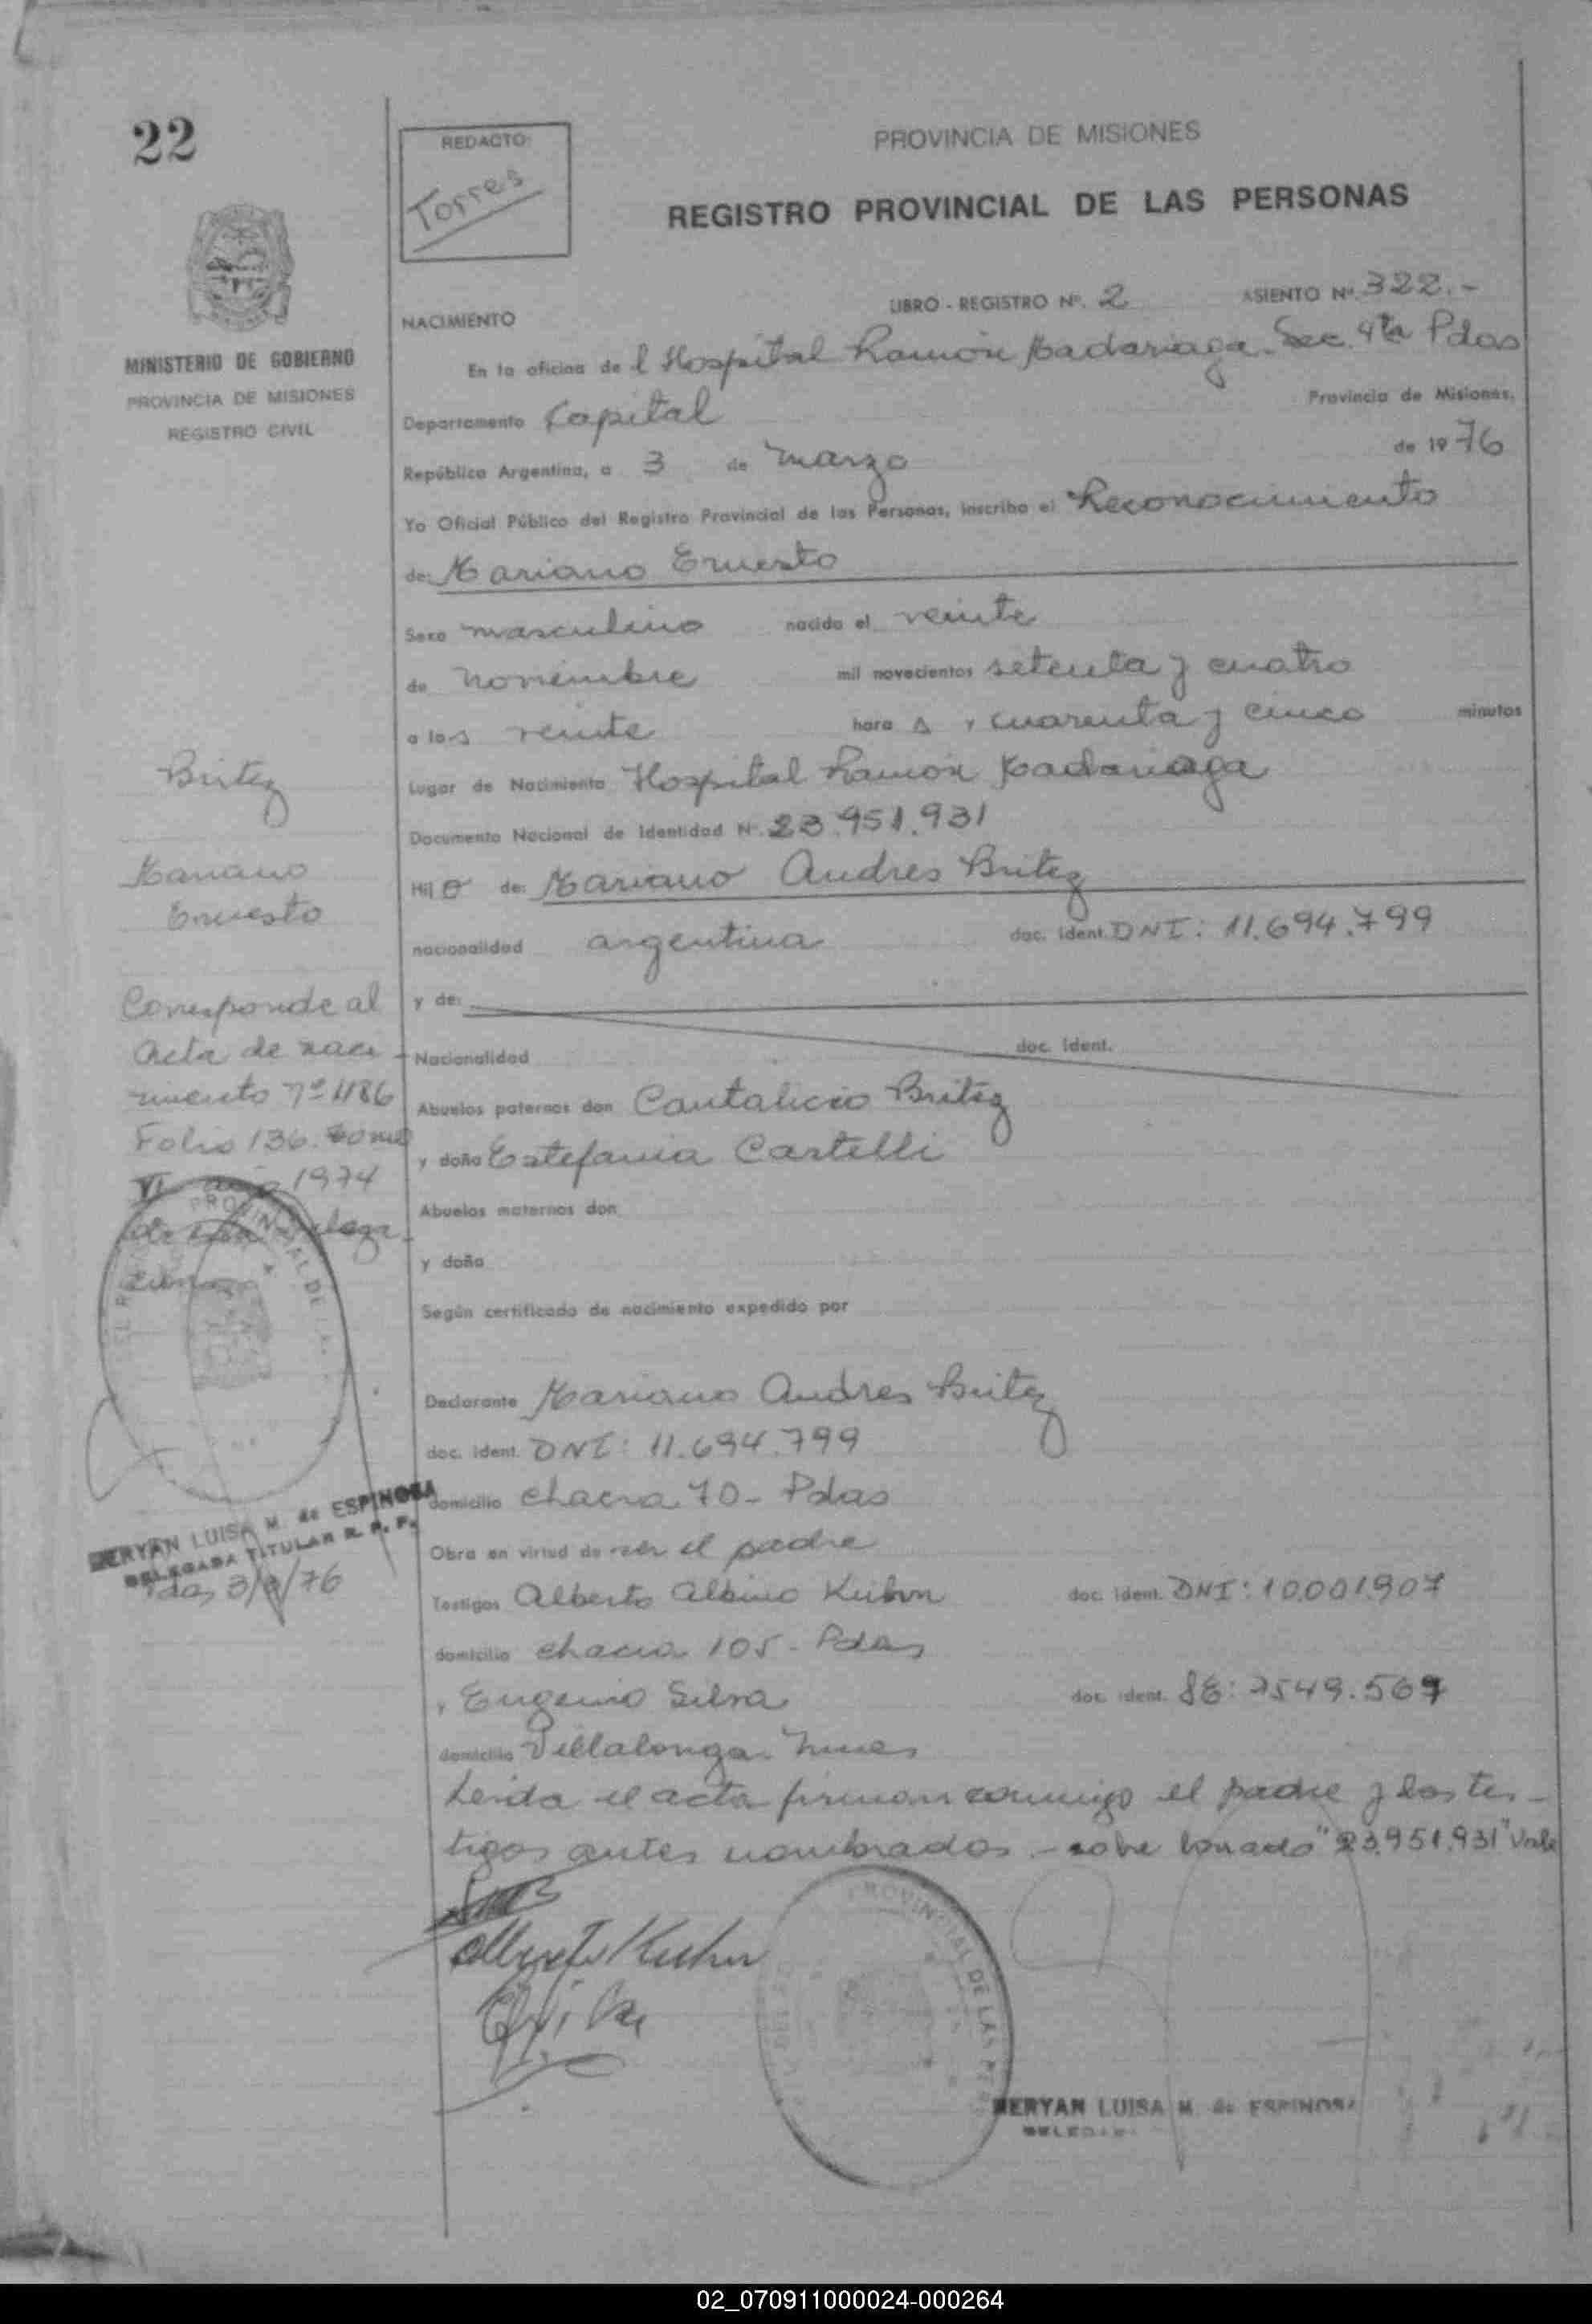 22
REDACTO:
Torres
PROVINCIA DE MISIONES
REGISTRO PROVINCIAL DE LAS PERSONAS
MINISTERIO DE GOBIERNO
PROVINCIA DE MISIONES
REGISTRO CIVIL
LIBRO - REGISTRO Nº. 2 ASIENTO Nº. 322.-
NACIMIENTO
En la oficina de l Hospital Ramón Madariaga. Sec. 4ta Pdas
Departamento Capital Provincia de Misiones,
República Argentina, a 3 de marzo de 1976
Yo Oficial Público del Registro Provincial de las Personas, inscribo el Reconocimiento
de: Mariano Ernesto
Sexo masculino nacido el veinte
de noviembre mil novecientos setenta y cuatro
a las veinte hora s y cuarenta y cinco minutos
Lugar de Nacimiento Hospital Ramón Madariaga
Documento Nacional de Identidad Nº 23.951.931
Hijo de: Mariano Andres Britez
nacionalidad argentina doc. ident. DNI: 11.694.799
y de:
Nacionalidad doc. ident.
Abuelos paternos don Cantalicio Britez
y doña Estefania Castelli
Abuelos maternos don
y doña
Según certificado de nacimiento expedido por
Declarante Mariano Andres Britez
doc. ident. DNI: 11.694.799
domicilio chacra 70- Pdas
Obra en virtud de ser el padre
Testigos Alberto Albino Kuhn doc. ident. DNI: 10.001.907
domicilio chacra 105- Pdas
y Eugenio Silva doc. ident.
domicilio Villalonga
Leida el acta firman conmigo el padre y los tes-
tigos antes nombrados.- sobre borrado "23.951.931" Vale
Britez
Mariano
Ernesto
Corresponde al
acta de naci
miento nº 1186
Folio 136. tomo
VI año 1974
de esta Delega-
cion
MERYAN LUISA M. de ESPINOSA
DELEGADA TITULAR R. P. P.
Pdas 3/3/76
Alberto Kuhn
PROVINCIAL DE LAS
MERYAN LUISA M. de ESPINOSA
02_070911000024-000264